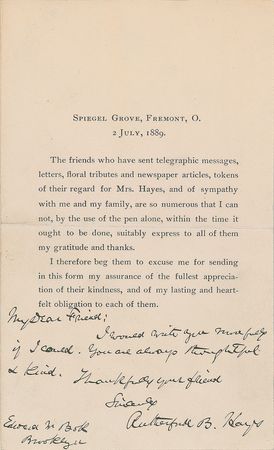 Spiegel Grove, Fremont, O.
2 July, 1889.
The friends who have sent telegraphic messages,
letters, floral tributes and newspaper articles, tokens
of their regard for Mrs. Hayes, and of sympathy
with me and my family, are so numerous that I can
not, by the use of the pen alone, within the time it
ought to be done, suitably express to all of them
my gratitude and thanks.
I therefore beg them to excuse me for sending
in this form my assurance of the fullest apprecia-
tion of their kindness, and of my lasting and heart-
felt obligation to each of them.
My Dear Friend:
I would write you more fully
if I could. You are always thoughtful
& kind. Thankfully your friend
Sincerely
Rutherford B. Hayes
Edward M
Brooklyn